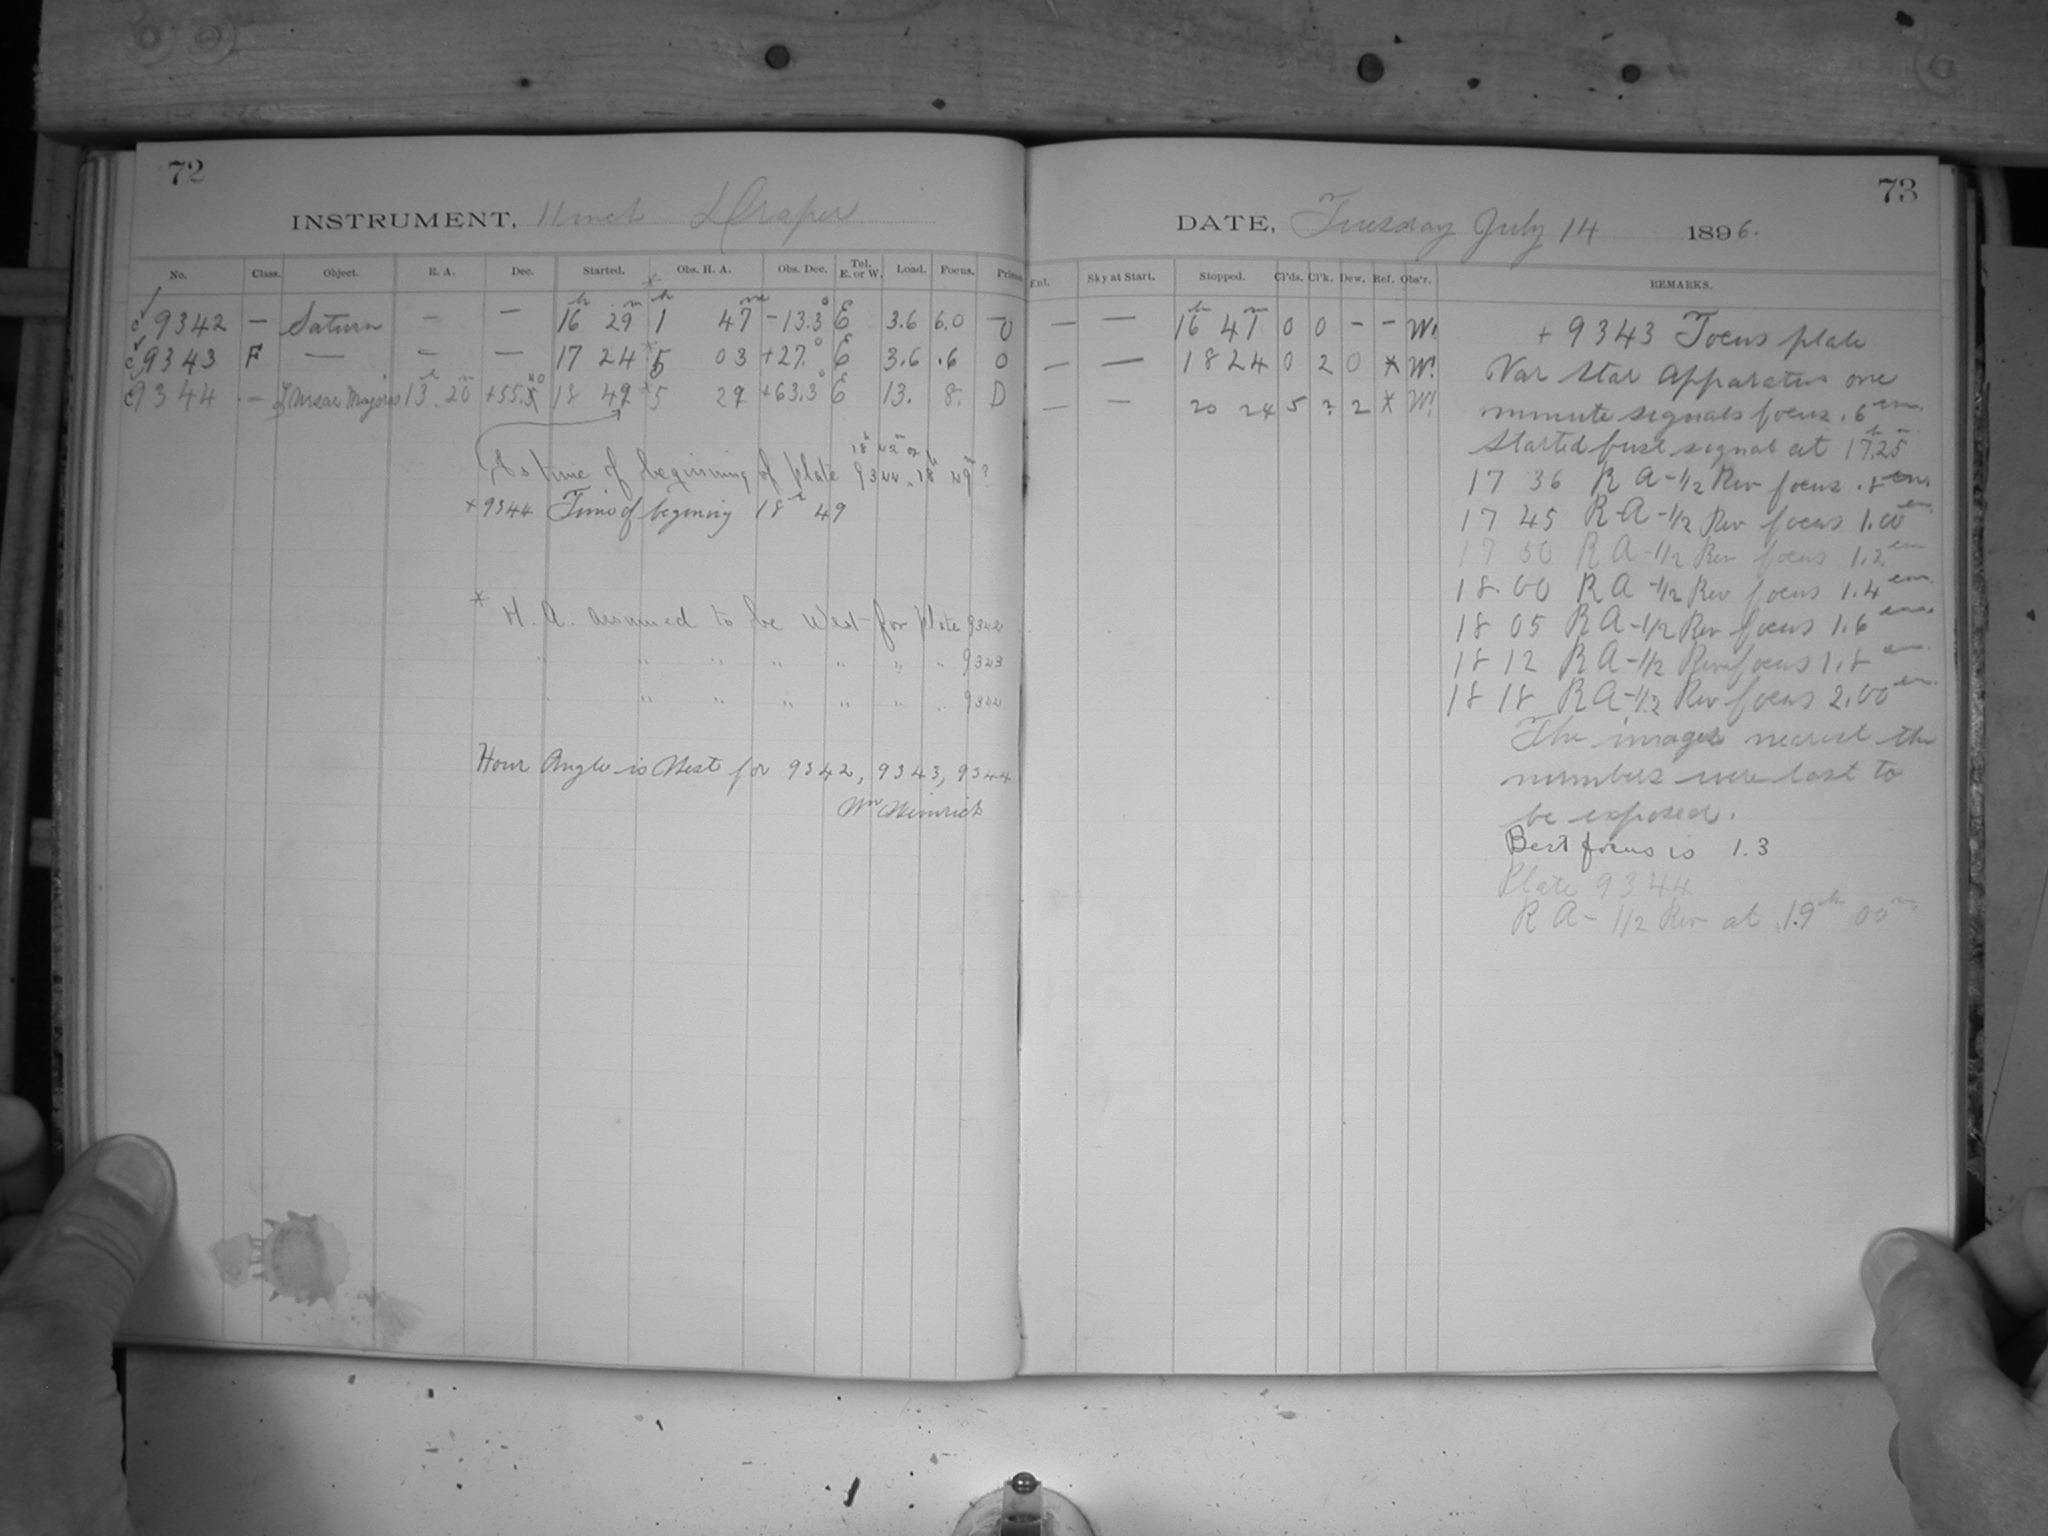 72
INSTRUMENT, 11 inch Draper
No. Class. Object. R. A. Dec. Started. Obs. H. A. Obs. Dec. Tel. E. or W. Load. Focus. Prism
c 9342 — Saturn — — 16h 29m 1h 47m −13.3° E 3.6 6.0 — 0
c 9343 F — — — 17 24 5 03 +27.° E 3.6 .6 0
c 9344 — ζ Ursae Majoris 13h 20m +55. 18 49 5 29 +63.3° E 13. 8. D
Is time of beginning of plate 9344, 18h 42m or 18h 49m?
+ 9344 Time of beginning 18h 49
* H. A. assumed to be West for plate 9342
" " " " " " " 9343
" " " " " " 9344
Hour Angle is West for 9342, 9343, 9344
Wm Heinrich
73
DATE, Tuesday July 14 1896.
Ent. Sky at Start. Stopped. Cl'ds. Cl'k. Dew. Ref. Obs'r. REMARKS.
— — 16h 47m 0 0 — — W!
— — 18 24 0 2 0 * W!
— — 20 24 5 2 2 * W!
+ 9343 Focus plate
Var Star Apparatus one
minute signals focus .6 cm.
Started fuse signal at 17h 25m
17 36 R A -1/2 Rev focus .8 cm.
17 45 R A -1/2 Rev focus 1.00 cm.
17 50 R A -1/2 Rev focus 1.2 cm
18.00 R A -1/2 Rev focus 1.4 cm.
18 05 R A -1/2 Rev focus 1.6 cm.
18 12 R A -1/2 Rev focus 1.8 cm.
18 18 R A -1/2 Rev focus 2.00 cm.
The images nearest the
numbers were last to
be exposed.
Best focus is 1.3
Plate 9344
R A - 1/2 Rev at 19h 00m